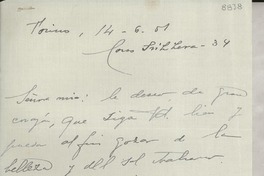 8838
Torino, 14-6.51
Corso - 34
Señora mia: le deseo de gran
corazón, que siga Ud. bien y
pueda al fin gozar de la
belleza y del sol italiano.